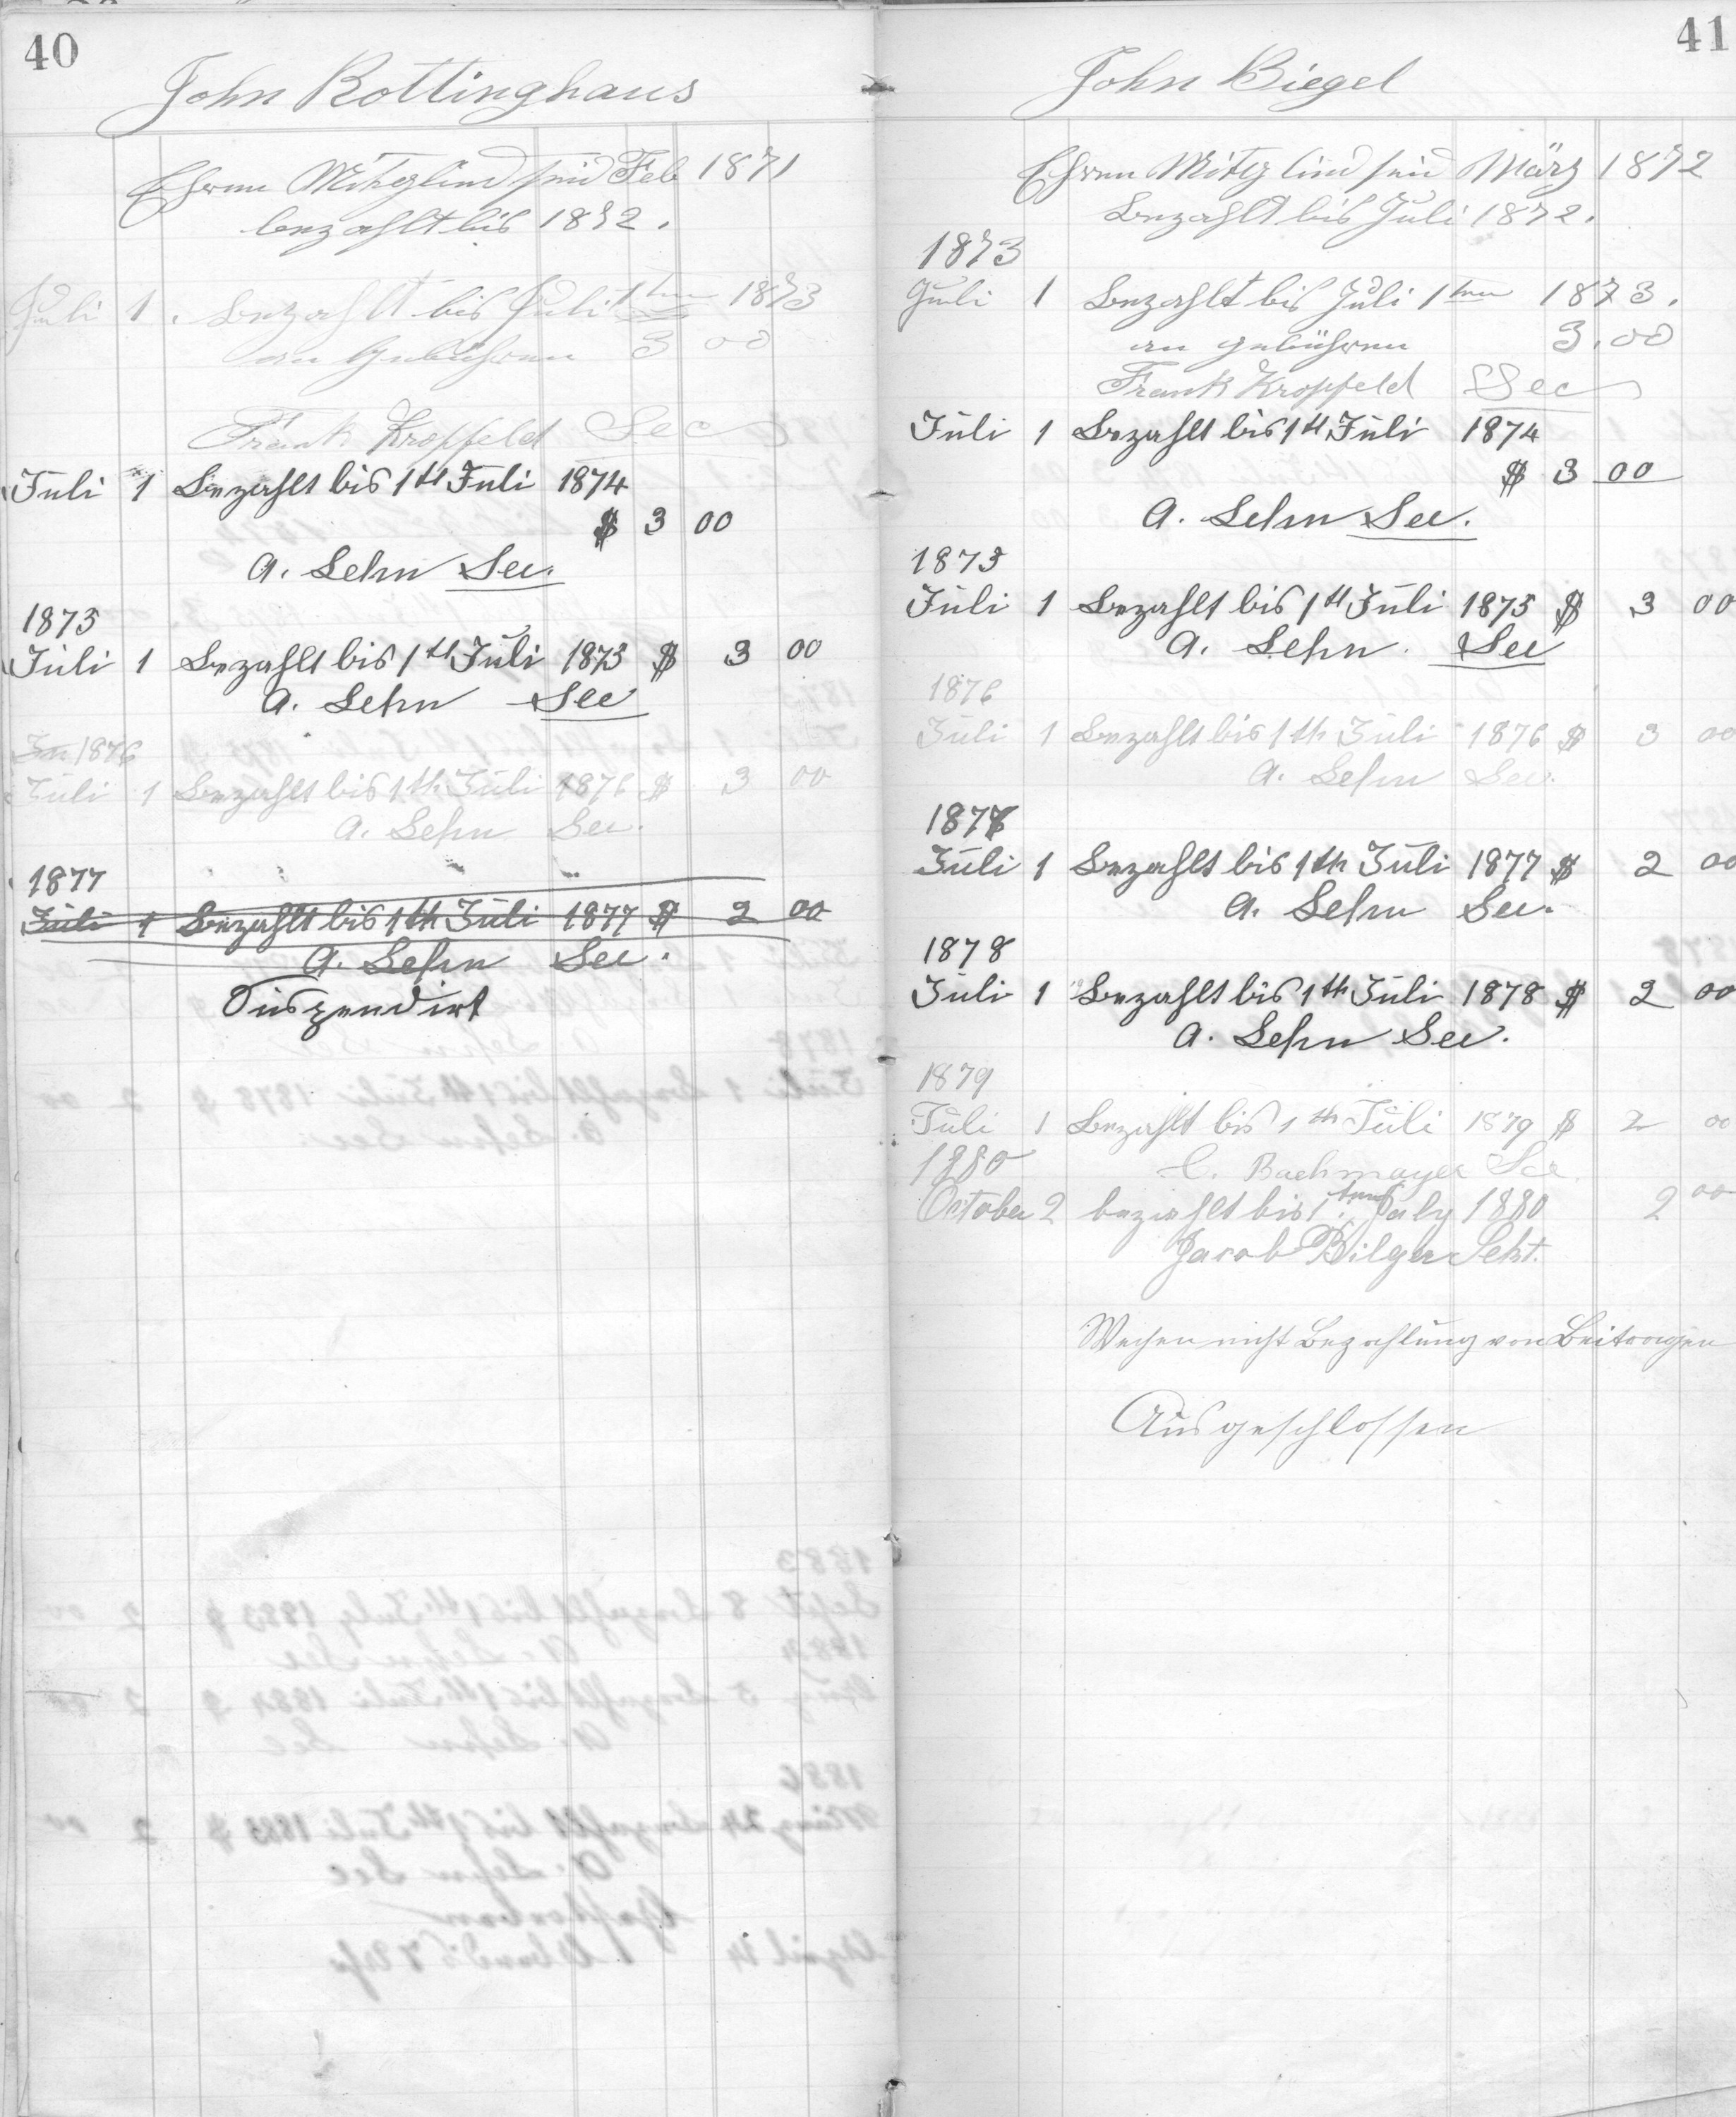 40
John Rottinghaus
Ehren Mitglied seid Feb 1871
bezahlt bis 1872.
Juli 1. bezahlt bis Juli 1ten 1873
an Gebühren 3 00
Frank Kropfeld Sec
Juli 1 Bezahlt bis 1st Juli 1874
$ 3 00
A. Lehn Sec.
1875
Juli 1 Bezahlt bis 1st Juli 1875 $ 3 00
A. Lehn Sec
1876
Juli 1 Bezahlt bis 1th Juli 1876 $ 3 00
A. Lehn Sec.
1877
Juli 1 Bezahlt bis 1th Juli 1877 $ 2 00
A. Lehn Sec.
Suspendirt
41
John Biegel
Ehren Mitglied seid März 1872
bezahlt bis Juli 1872.
1873
Juli 1 bezahlt bis Juli 1ten 1873.
an gebühren 3.00
Frank Kropfeld Sec
Juli 1 Bezahlt bis 1st Juli 1874
$ 3 00
A. Lehn Sec.
1875
Juli 1 Bezahlt bis 1st Juli 1875 $ 3 00
A. Lehn. Sec
1876
Juli 1 Bezahlt bis 1th Juli 1876 $ 3 00
A. Lehn Sec.
1877
Juli 1 Bezahlt bis 1th Juli 1877 $ 2 00
A. Lehn Sec.
1878
Juli 1 Bezahlt bis 1th Juli 1878 $ 2 00
A. Lehn Sec.
1879
Juli 1 Bezahlt bis 1th Juli 1879 $ 2 00
C. Bachmayer Sec
1880
October 2 bezahlt bis 1ten July 1880 2 00
Jacob Bilger Sekt.
Wegen nicht Bezahlung von Beitragen
Ausgeschlossen